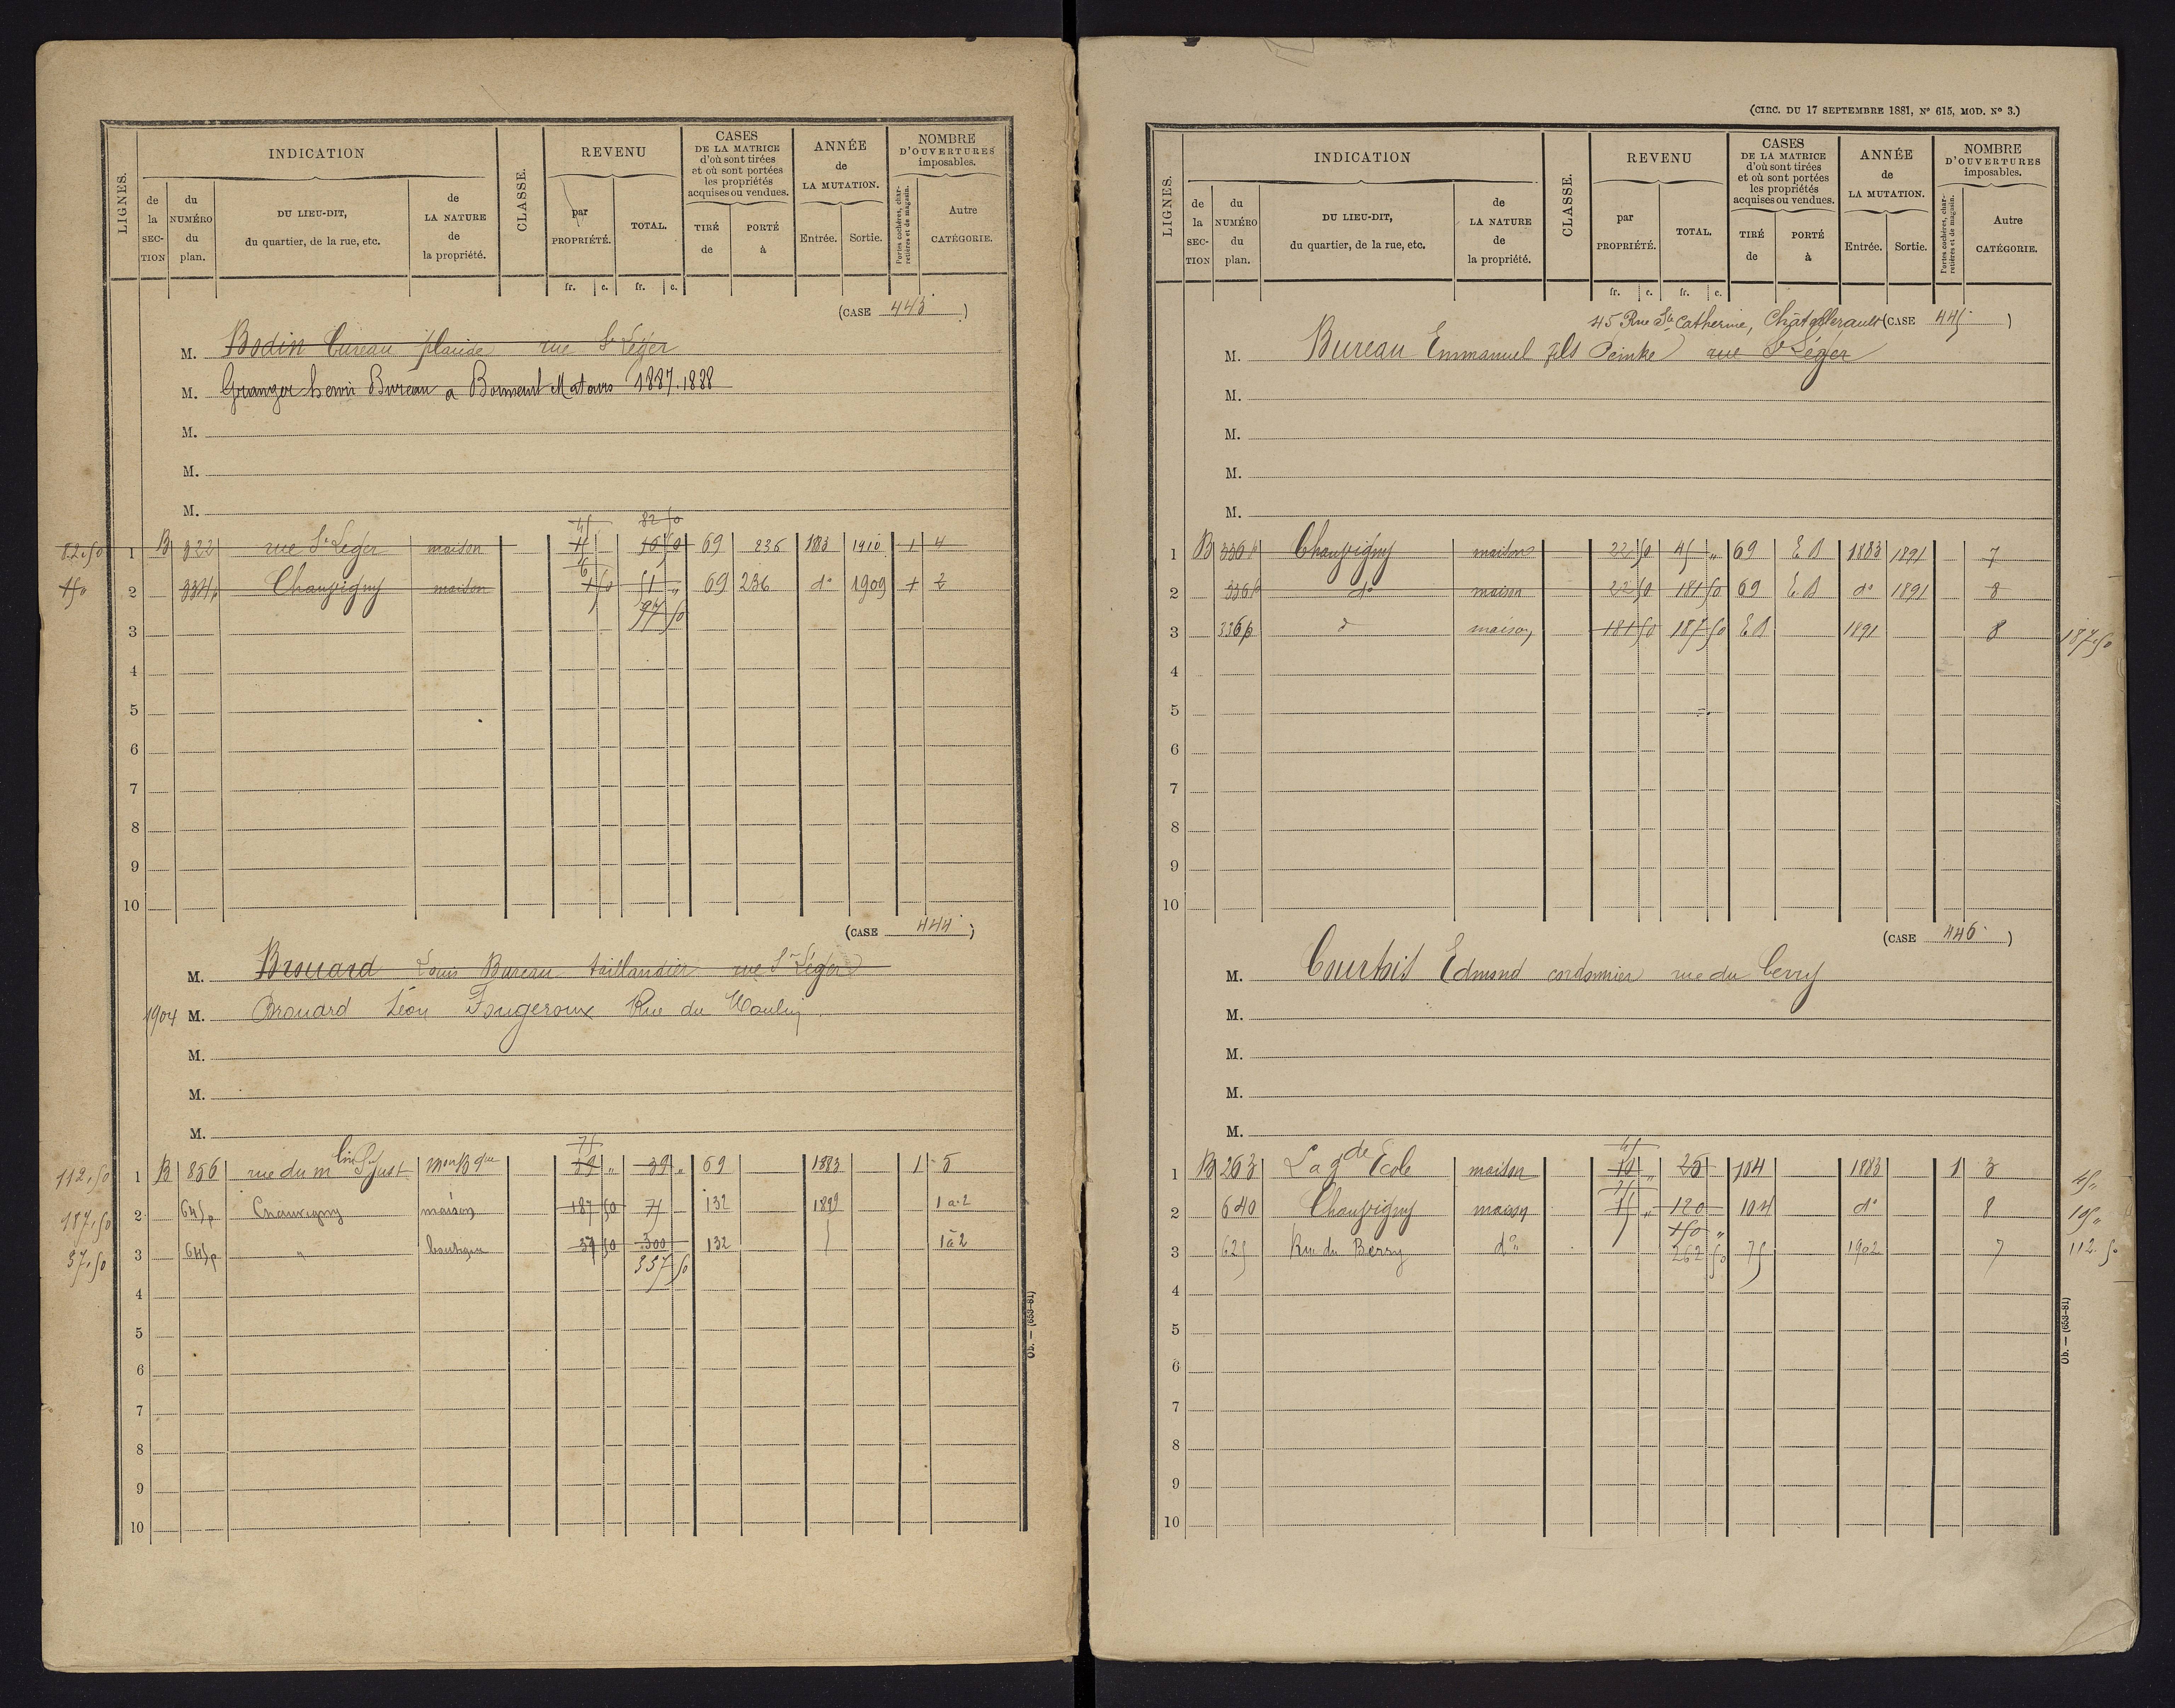 LIGNES.
INDICATION
de la SECTION
du NUMÉRO du plan.
DU LIEU-DIT, du quartier, de la rue, etc.
de LA NATURE de la propriété.
CLASSE.
REVENU
par PROPRIÉTÉ.
TOTAL.
CASES DE LA MATRICE d'où sont tirées et où sont portées les propriétés acquises ou vendues.
TIRÉ de
PORTÉ à
ANNÉE de LA MUTATION.
Entrée. Sortie.
NOMBRE D'OUVERTURES imposables.
Portes cochères, charretières et de magasin.
Autre CATÉGORIE.
fr. c. fr. c.
(CASE 443)
M. Bodin Bureau placide rue St Léger
M. Granger henri Bureau a Bonneuil Matours 1887.1888
M.
M.
M.
45 82 50
82.50 1 B 322 rue St Léger maison 50 69 236 1883 1910 1 4
2 334p Chauvigny maison 50 51 " 69 236 do 1909 2
97 50
3
4
5
6
7
8
9
10
(CASE 444)
M. Brouard Louis Bureau taillandier rue St Léger
1904 M. Brouard Léon Fougeroux Rue du Moulin
M.
M.
M.
75
112,50 1 B 856 rue du mlin St Just mon Bque 39 " 39 " 69 1883 1 5
187,50 2 645p Chauvigny maison 187 50 75 132 1899 1 a 2
37,50 3 645p " boutique 37 50 300 132 1 à 2
337 50
4
5
6
7
8
9
10
Ob. — (653-81)
(CIRC. DU 17 SEPTEMBRE 1881, No 615, MOD. No 3.)
LIGNES.
INDICATION
de la SECTION
du NUMÉRO du plan.
DU LIEU-DIT, du quartier, de la rue, etc.
de LA NATURE de la propriété.
CLASSE.
REVENU
par PROPRIÉTÉ.
TOTAL.
CASES DE LA MATRICE d'où sont tirées et où sont portées les propriétés acquises ou vendues.
TIRÉ de
PORTÉ à
ANNÉE de LA MUTATION.
Entrée. Sortie.
NOMBRE D'OUVERTURES imposables.
Portes cochères, charretières et de magasin.
Autre CATÉGORIE.
fr. c. fr. c.
45 Rue Ste Catherine, Châtellerault (CASE 445)
M. Bureau Emmanuel fils Peintre rue St Léger
M.
M.
M.
M.
1 B 336p Chauvigny maison 22 50 45 " 69 E B 1883 1891 7
2 336p do maison 22 50 181 50 69 E B do 1891 8
3 336p d maison 181 50 187 50 E B 1891 8 187.50
4
5
6
7
8
9
10
(CASE 446)
M. Courtois Edmond cordonnier rue du Berry
M.
M.
M.
M.
45
1 B 263 La gde Ecole maison 10 " 25 104 1883 1 3 45 "
75
2 640 Chauvigny maison 15 " 120 104 do 8
150 "
3 625 Rue du Berry do 262 50 75 1902 7 112.50
4
5
6
7
8
9
10
Ob. — (653-81)